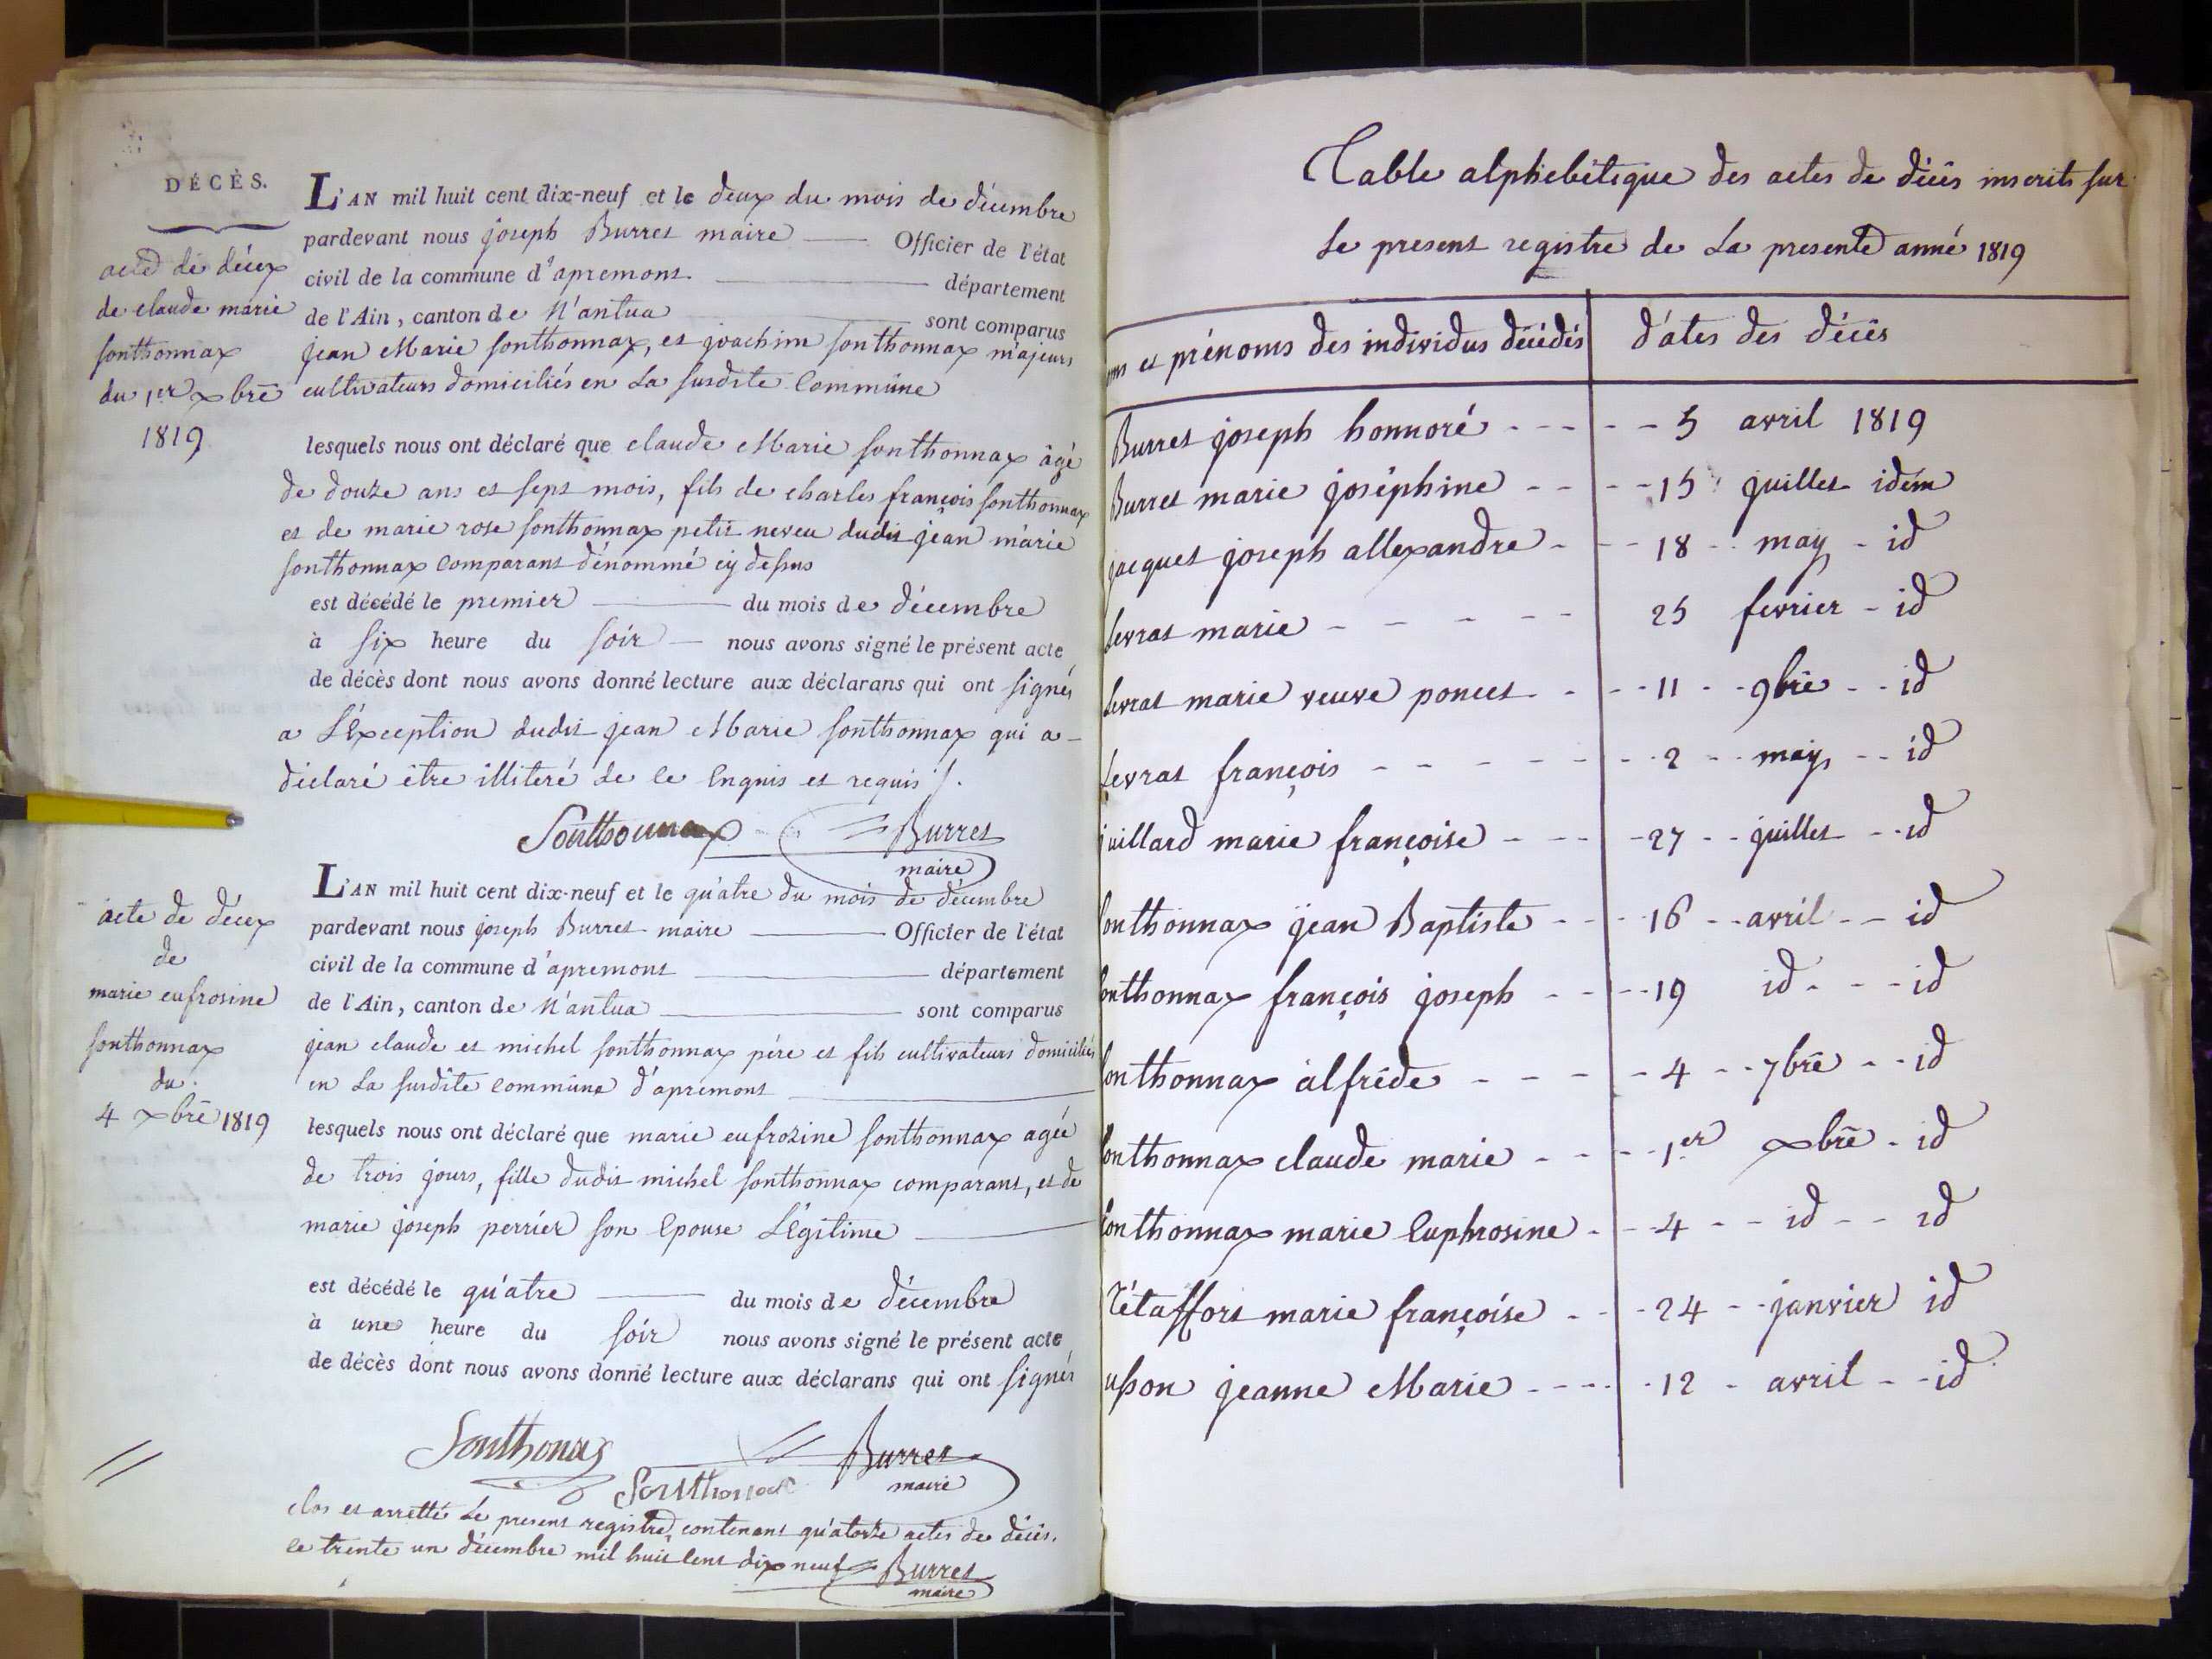 DÉCÈS.
acte de décex
de claude marie
sonthonnax
du 1er xbre
1819
L'AN mil huit cent dix-neuf et le deux du mois de décembre
pardevant nous joseph Burret maire Officier de l'état
civil de la commune d'apremont département
de l'Ain, canton de Nantua sont comparus
jean Marie sonthonnax, et joachim sonthonnax majeurs
cultivateurs domiciliés en la susdite Commune
lesquels nous ont déclaré que claude Marie sonthonnax âgé
de douze ans et sept mois, fils de charles françois sonthonnax
et de marie rose sonthonnax petit neveu dudit jean marie
sonthonnax Comparant dénommé cy dessus
est décédé le premier du mois de décembre
à six heure du soir nous avons signé le présent acte
de décès dont nous avons donné lecture aux déclarans qui ont signés
a L'Exception dudit jean Marie sonthonnax qui a
déclaré être illiteré de ce Enquis et requis
Sonthonnax Burret
maire
acte de décex
de
marie eufrosine
sonthonnax
du
4 xbre 1819
L'AN mil huit cent dix-neuf et le quatre du mois de décembre
pardevant nous joseph Burret maire Officier de l'état
civil de la commune d'apremont département
de l'Ain, canton de Nantua sont comparus
jean claude et michel sonthonnax père et fils cultivateurs domiciliés
en La susdite commune d'apremont
lesquels nous ont déclaré que marie eufrozine sonthonnax agée
de trois jours, fille dudit michel sonthonnax comparant, et de
marie joseph perrier son Epouse Légitime
est décédé le quatre du mois de décembre
à une heure du soir nous avons signé le présent acte
de décès dont nous avons donné lecture aux déclarans qui ont signés
Sonthonax Burret
Sonthonax maire
clos et arretté Le present registre, contenant quatorze actes de décès.
ce trente un décembre mil huit Cent dix neuf Burret
maire
Table alphebétique des actes de décès inscrits sur
Le present registre de La presente anné 1819
oms et prénoms des individus décédés dates des décès
Burret joseph honnoré - - - - - 5 avril 1819
Burret marie joséphine - - - - 15 juillet idem
jacquet joseph allexandre - - - 18 - - may - id
Levrat marie - - - - - 25 fevrier - id
Levrat marie veuve poncet - - - - 11 - - 9bre - - id
Levrat françois - - - - - - - 2 - - may - - id
juillard marie françoise - - - - 27 - - juillet - - id
Sonthonnax jean Baptiste - - - - 16 - - avril - - id
Sonthonnax françois joseph - - - - 19 id - - - id
Sonthonnax alfrede - - - - - 4 - - 7bre - - id
Sonthonnax claude marie - - - - 1er xbre - id
Sonthonnax marie Euphrosine - - - 4 - - id - - id
Tétaffort marie françoise - - - 24 - - janvier id
usson jeanne Marie - - - - - 12 - avril - - id